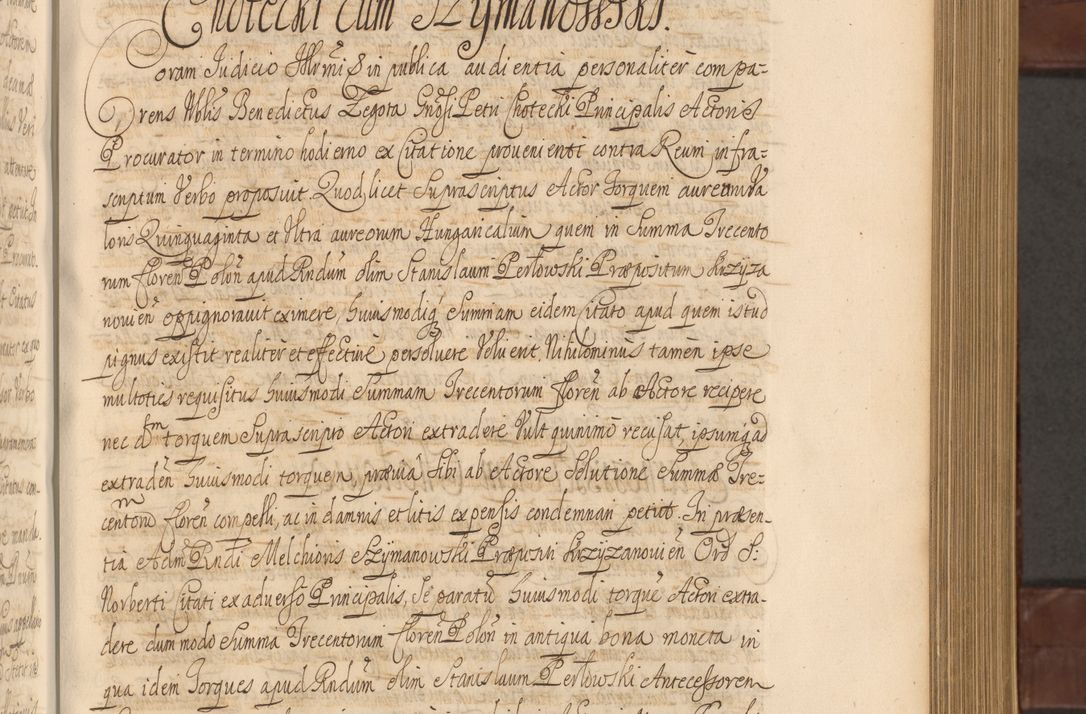 Chotecki cum Szymanowski.
Coram Judicio Illrmi S in publica audientia personaliter compa-
rens Nblis Benedictus Zegota Gnosi Petri Chotecki Principalis Actoris
Procurator in termino hodierno ex Citatione proveniente contra Reum infra-
scriptum Verbo proposuit. Quod licet Suprascriptus Actor Torquem aureum Va
loris Quinquaginta et Ultra aureorum Hungaricalium quem in Summa Trecento
rum floren Polon apud Rndum olim Stanislaum Perłowski Præpositum Krzyża
novien oppignoravit eximere, huiusmodiq Summam eidem Citato apud quem istud
pignus existit realiter et effective persolvere Voluerit, Nihilominus tamen ipse
multoties requisitus huiusmodi Summam Trecentorum floren ab Actore recipere
nec dtm torquem Suprascripto Actori extradere Vult quinimo recusat, ipsumq ad
extraden huiusmodi torquem, prævia sibi ab Actore Solutione Summæ Tre-
centoru floren compelli, ac in damnis et litis expensis condemnari petiit. In præsen-
tia Adm Rndi Melchioris Szymanowski Præpositi Krzyzanovien Ord S:
Norberti Citati ex adverso Principalis, Se paratu huiusmodi torque Actori extra-
dere dummodo Summa Trecentorum floren Polon in antiqua bona moneta in
qua idem Torques apud Rndum olim Stanislaum Perłowski Antecessorem